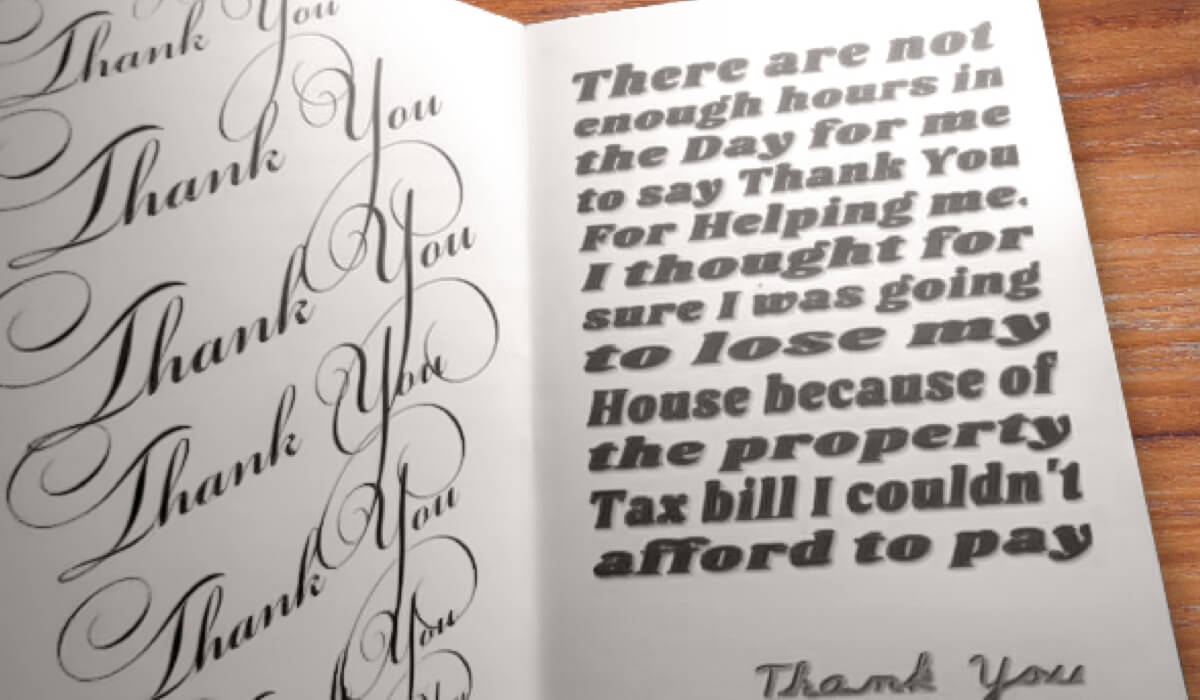 Thank You
Thank You
Thank You
Thank You
Thank You
You
There are not
enough hours in
the Day for me
to say Thank You
For Helping me.
I thought for
sure I was going
to lose my
House because of
the property
Tax bill I couldn't
afford to pay
Thank You